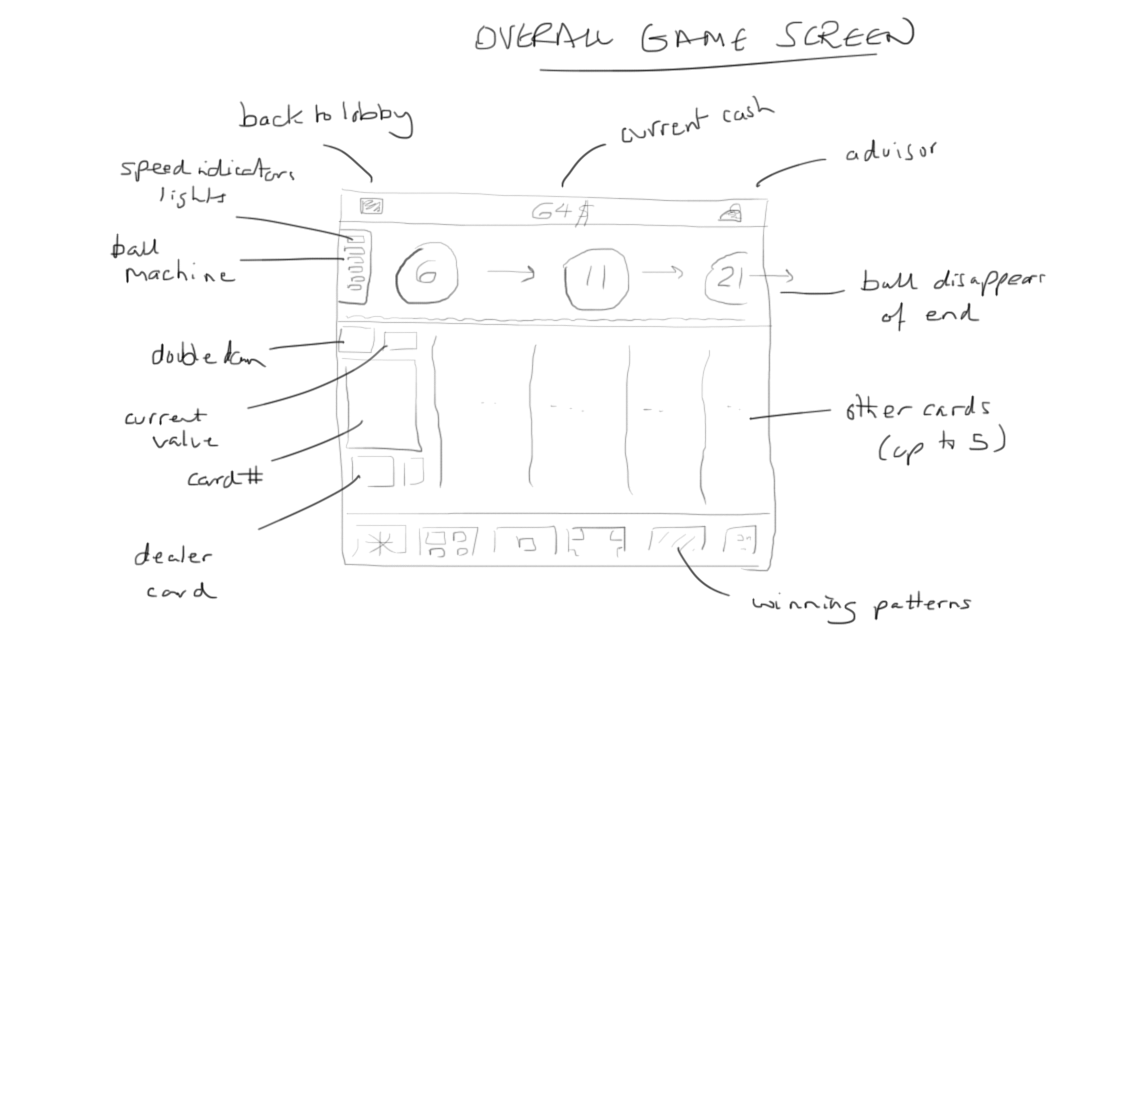 OVERALL GAME SCREEN
back to lobby
current cash
advisor
speed indicators
lights
64$
ball
machine
6
11
21
ball disappears
of end
double down
current
value
other cards
(up to 5)
card#
dealer
card
winning patterns